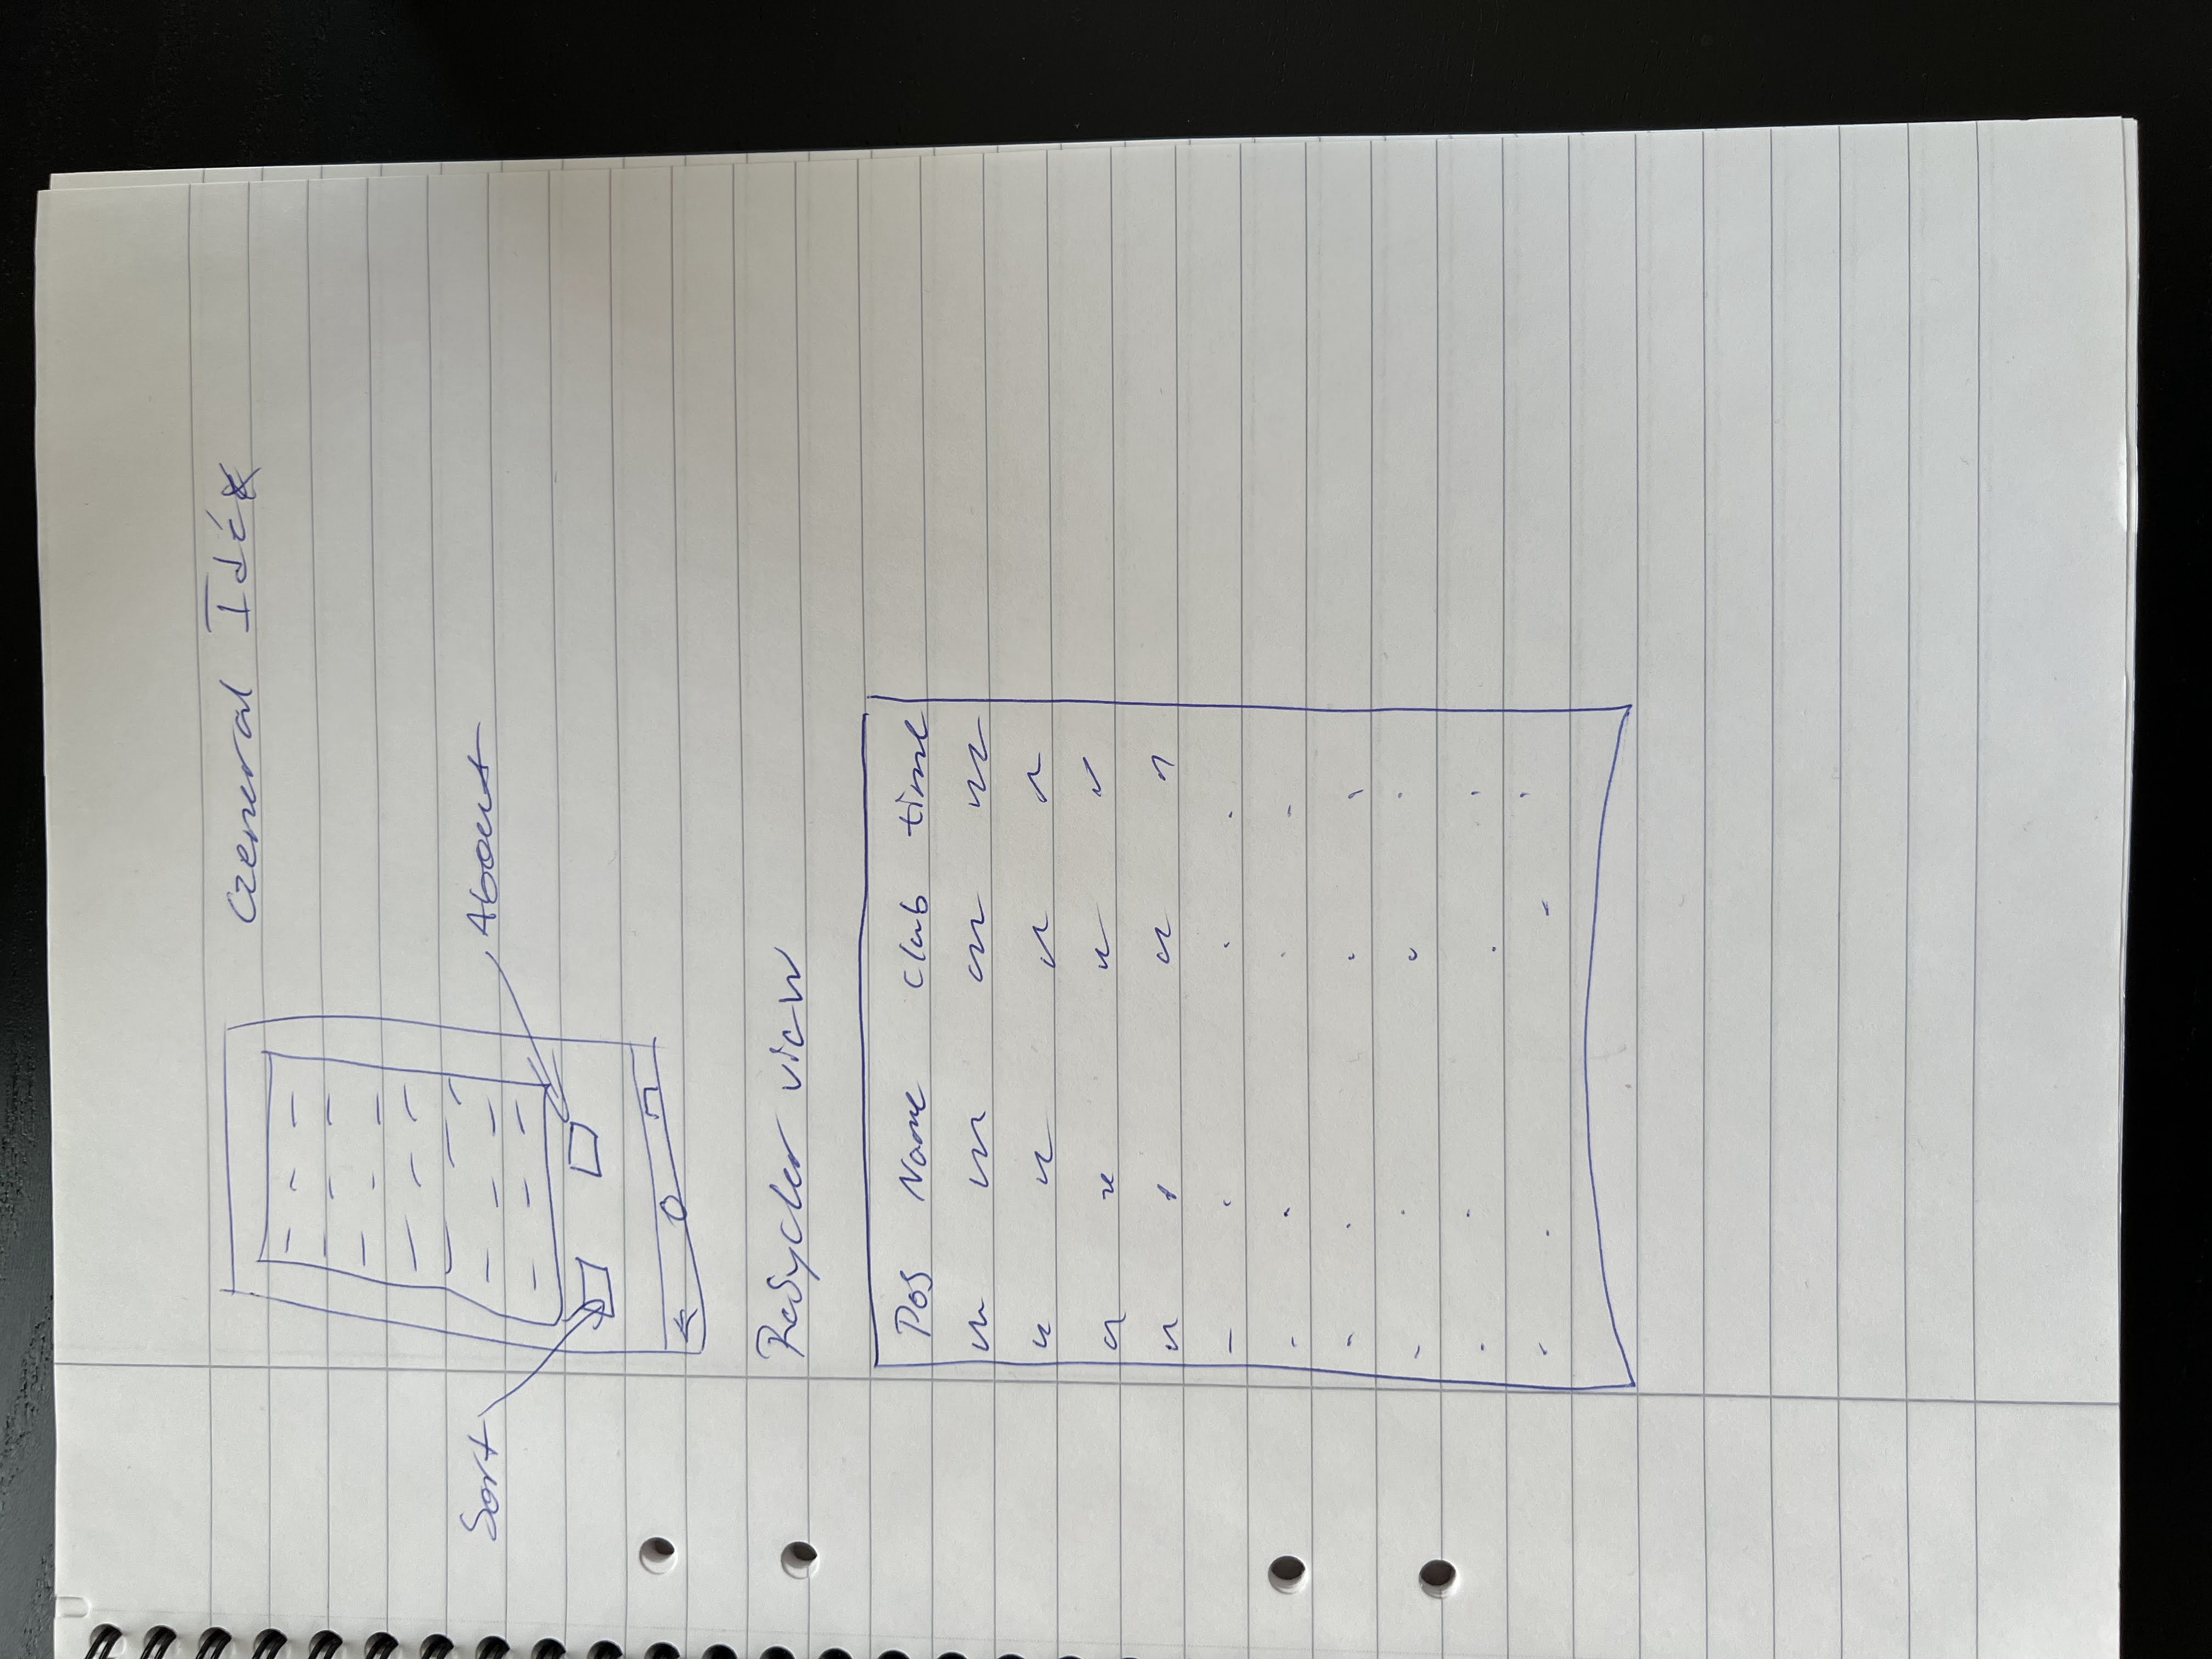 General Idé
Sort
About
Resycler view
Pos Name Club time